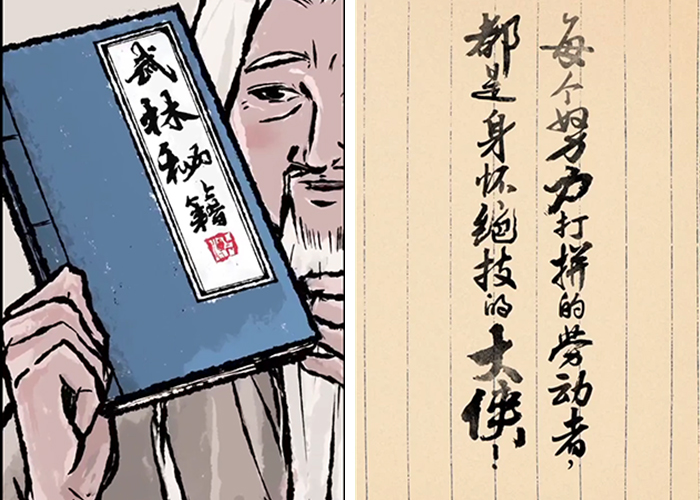 武林秘籍
每个努力打拼的劳动者，
都是身怀绝技的大侠！